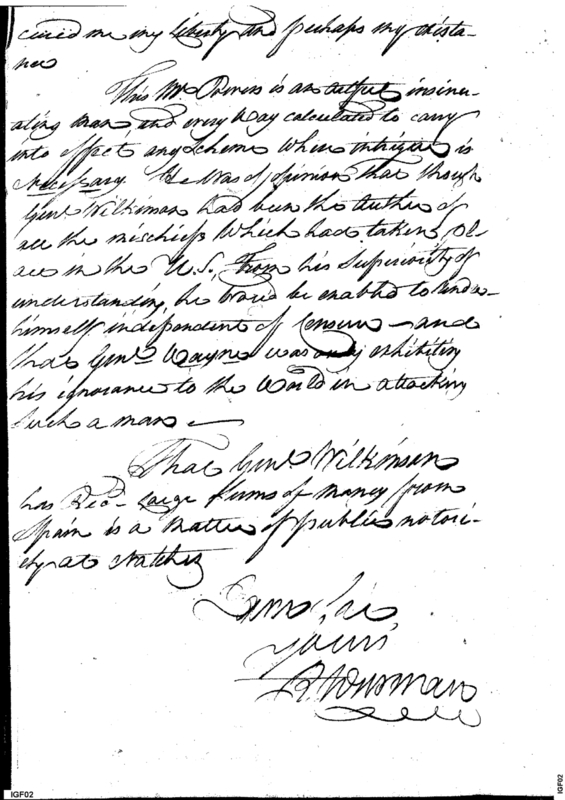 my liberty and perhaps my dista-
nce
This Mr. Powers is an artful insinu-
ating man, and every way calculated to carry
into effect any Scheme where intrigue is
necessary. He was of opinion that though
Genl. Wilkinson had been the author of
all the mischiefs which had taken pl-
ace in the U.S. From his Superiority of
understanding, he would be enabled to rend-
himself independent of Censure — and
that Genl. Wayne was only exhibiting
his ignorance to the World in attacking
Such a man —
That Genl. Wilkinson
has Recd. large Sums of money from
Spain is a Matter of public notori-
ety at Natchez
I am Sir,
yours,
IGF02
IGF02